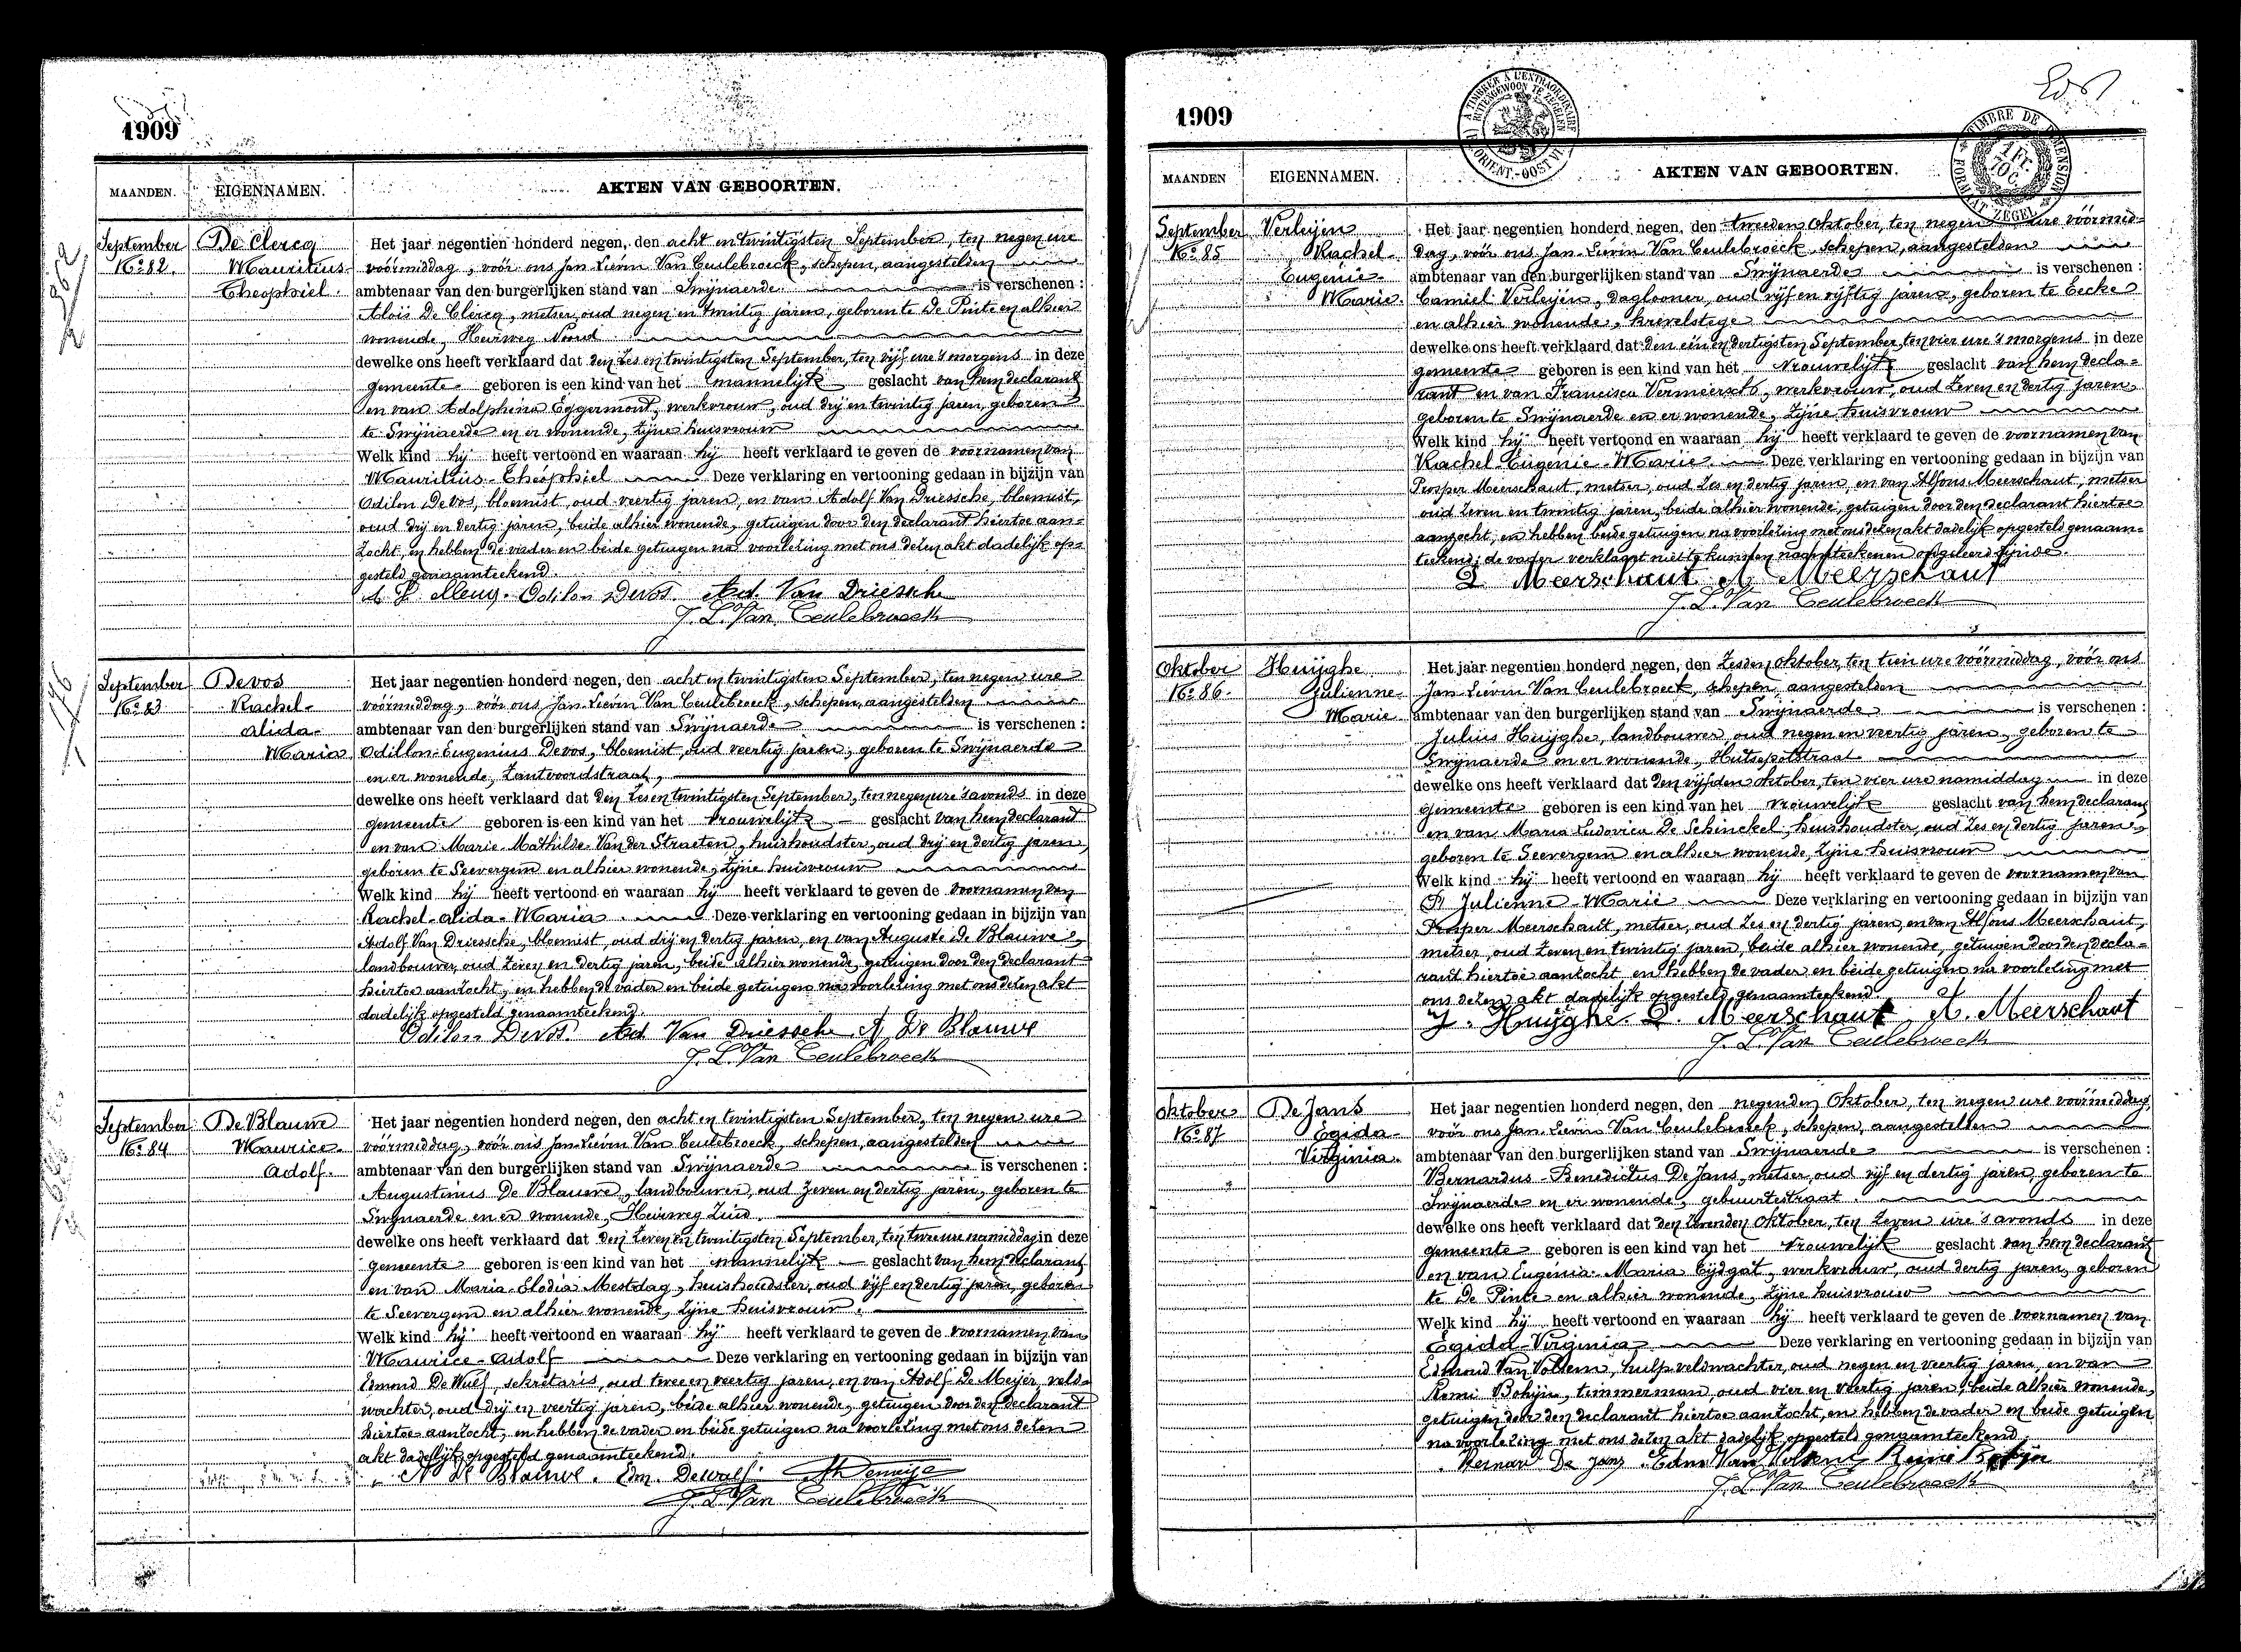 1909
MAANDEN. EIGENNAMEN. AKTEN VAN GEBOORTEN.
September
No 82.
De Clercq
Mauritius-
Theophiel.
Het jaar negentien honderd negen, den acht en twintigsten September, ten negen ure
vóórmiddag, vóór ons Jan Lievin Van Ceulebroeck, schepen, aangestelden
ambtenaar van den burgerlijken stand van Swijnaerde is verschenen :
Alois De Clercq, metser, oud negen en twintig jaren, geboren te De Pinte en alhier
wonende, Heirweg Noord
dewelke ons heeft verklaard dat den zes en twintigsten September, ten vijf ure 's morgens in deze
gemeente geboren is een kind van het mannelijk geslacht van hem declarant
en van Adolphina Eggermont, werkvrouw, oud drij en twintig jaren, geboren
te Swijnaerde en er wonende, zijne huisvrouw
Welk kind hij heeft vertoond en waaraan hij heeft verklaard te geven de voornamen van
Mauritius-Théophiel Deze verklaring en vertooning gedaan in bijzijn van
Odilon Devos, bloemist, oud veertig jaren, en van Adolf Van Driessche, bloemist,
oud drij en dertig jaren, beide alhier wonende, getuigen door den declarant hiertoe aan-
zocht, en hebben de vader en beide getuigen na voorlezing met ons dezen akt dadelijk op-
gesteld genaamteekend.
Odilon Devos. Ad. Van Driessche
J. L. Van Ceulebroeck
September
No 83
Devos
Rachel-
alida-
Maria
Het jaar negentien honderd negen, den acht en twintigsten September, ten negen ure
vóórmiddag, vóór ons Jan Lievin Van Ceulebroeck, schepen, aangestelden
ambtenaar van den burgerlijken stand van Swijnaerde is verschenen :
Odillon-Eugenius Devos, bloemist, oud veertig jaren, geboren te Swijnaerde
en er wonende, Zantvoordstraat,
dewelke ons heeft verklaard dat den zes en twintigsten September, ten negen ure 's avonds in deze
gemeente geboren is een kind van het vrouwelijk geslacht van hem declarant
en van Marie-Mathilde Van der Straeten, huishoudster, oud drij en dertig jaren,
geboren te Seevergem en alhier wonende, zijne huisvrouw
Welk kind hij heeft vertoond en waaraan hij heeft verklaard te geven de voornamen van
Rachel-alida-Maria. Deze verklaring en vertooning gedaan in bijzijn van
Adolf Van Driessche, bloemist, oud drij en dertig jaren, en van Auguste De Blauwe,
landbouwer, oud zeven en dertig jaren, beide alhier wonende, getuigen door den declarant
hiertoe aanzocht, en hebben de vader en beide getuigen na voorlezing met ons dezen akt
dadelijk opgesteld genaamteekend.
Odilon Devos. Ad Van Driessche A. De Blauwe
J. L. Van Ceulebroeck
September
No 84
De Blauwe
Maurice-
Adolf.
Het jaar negentien honderd negen, den acht en twintigsten September, ten negen ure
vóórmiddag, vóór ons Jan Lievin Van Ceulebroeck, schepen, aangestelden
ambtenaar van den burgerlijken stand van Swijnaerde is verschenen :
Augustinus De Blauwe, landbouwer, oud zeven en dertig jaren, geboren te
Swijnaerde en er wonende, Heirweg Zuid.
dewelke ons heeft verklaard dat den zeven en twintigsten September, ten twee ure namiddag in deze
gemeente geboren is een kind van het mannelijk geslacht van hem declarant
en van Maria-Elodia Mestdag, huishoudster, oud vijf en dertig jaren, geboren
te Seevergem en alhier wonende, zijne huisvrouw.
Welk kind hij heeft vertoond en waaraan hij heeft verklaard te geven de voornamen van
Maurice-Adolf Deze verklaring en vertooning gedaan in bijzijn van
Edmond De Wulf, sekretaris, oud twee en veertig jaren, en van Adolf De Meijer, veld-
wachter, oud drij en veertig jaren, beide alhier wonende, getuigen door den declarant
hiertoe aanzocht, en hebben de vader en beide getuigen na voorlezing met ons dezen
akt dadelijk opgesteld genaamteekend.
A. De Blauwe. Edm. Dewulf.
J. L. Van Ceulebroeck
1909
MAANDEN EIGENNAMEN. AKTEN VAN GEBOORTEN.
September
No 85
Verleijen
Rachel-
Eugénie-
Marie.
Het jaar negentien honderd negen, den tweeden Oktober, ten negen ure vóórmid-
dag, vóór ons Jan Lievin Van Ceulebroeck, schepen, aangestelden
ambtenaar van den burgerlijken stand van Swijnaerde is verschenen :
Camiel Verleijen, daglooner, oud vijf en vijftig jaren, geboren te Eecke
en alhier wonende, krevelstege
dewelke ons heeft verklaard dat den een en dertigsten September, ten vier ure 's morgens in deze
gemeente geboren is een kind van het vrouwelijk geslacht van hem decla-
rant en van Francisca Vermeersch, werkvrouw, oud zeven en dertig jaren,
geboren te Swijnaerde en er wonende, zijne huisvrouw
Welk kind hij heeft vertoond en waaraan hij heeft verklaard te geven de voornamen van
Rachel-Eugénie-Marie. Deze verklaring en vertooning gedaan in bijzijn van
Prosper Meerschaut, metser, oud zes en dertig jaren, en van Alfons Meerschaut, metser
oud zeven en twintig jaren, beide alhier wonende, getuigen door den declarant hiertoe
aanzocht, en hebben beide getuigen na voorlezing met ons dezen akt dadelijk opgesteld genaam-
teekend; de vader verklaart niet te kunnen naamteekenen ongeleerd zijnde.
P. Meerschaut A. Meerschaut
J. L. Van Ceulebroeck
Oktober
No 86.
Huijghe
Julienne-
Marie
Het jaar negentien honderd negen, den zesden Oktober, ten tien ure vóórmiddag, vóór ons
Jan Lievin Van Ceulebroeck, schepen, aangestelden
ambtenaar van den burgerlijken stand van Swijnaerde is verschenen :
Julius Huijghe, landbouwer, oud negen en veertig jaren, geboren te
Swijnaerde en er wonende, Hutsepotstraat
dewelke ons heeft verklaard dat den vijfden Oktober, ten vier ure namiddag in deze
gemeente geboren is een kind van het vrouwelijk geslacht van hem declarant
en van Maria Ludovica De Schinckel, huishoudster, oud zes en dertig jaren,
geboren te Seevergem en alhier wonende, zijne huisvrouw
Welk kind hij heeft vertoond en waaraan hij heeft verklaard te geven de voornamen van
Julienne-Marie Deze verklaring en vertooning gedaan in bijzijn van
Prosper Meerschaut, metser, oud zes en dertig jaren, en van Alfons Meerschaut,
metser, oud zeven en twintig jaren, beide alhier wonende, getuigen door den decla-
rant hiertoe aanzocht en hebben de vader en beide getuigen na voorlezing met
ons dezen akt dadelijk opgesteld genaamteekend
J. Huijghe. P. Meerschaut A. Meerschaut
J. L. Van Ceulebroeck
Oktober
No 87
De Jans
Egida-
Virginia.
Het jaar negentien honderd negen, den negenden Oktober, ten negen ure vóórmiddag,
vóór ons Jan Lievin Van Ceulebroeck, schepen, aangestelden
ambtenaar van den burgerlijken stand van Swijnaerde is verschenen :
Bernardus-Benedictus De Jans, metser, oud vijf en dertig jaren, geboren te
Swijnaerde en er wonende, gebuurtestraat.
dewelke ons heeft verklaard dat den zevenden Oktober, ten zeven ure 's avonds in deze
gemeente geboren is een kind van het vrouwelijk geslacht van hem declarant
en van Eugenia-Maria Eijdgat, werkvrouw, oud dertig jaren, geboren
te De Pinte en alhier wonende, zijne huisvrouw
Welk kind hij heeft vertoond en waaraan hij heeft verklaard te geven de voornamen van
Egida-Virginia Deze verklaring en vertooning gedaan in bijzijn van
Edmond Van Volsem, hulpveldwachter, oud negen en veertig jaren, en van
Remi Bohijn, timmerman, oud vier en veertig jaren, beide alhier wonende,
getuigen door den declarant hiertoe aanzocht, en hebben de vader en beide getuigen
na voorlezing met ons dezen akt dadelijk opgesteld genaamteekend.
Bernard De Jans
J. L. Van Ceulebroeck